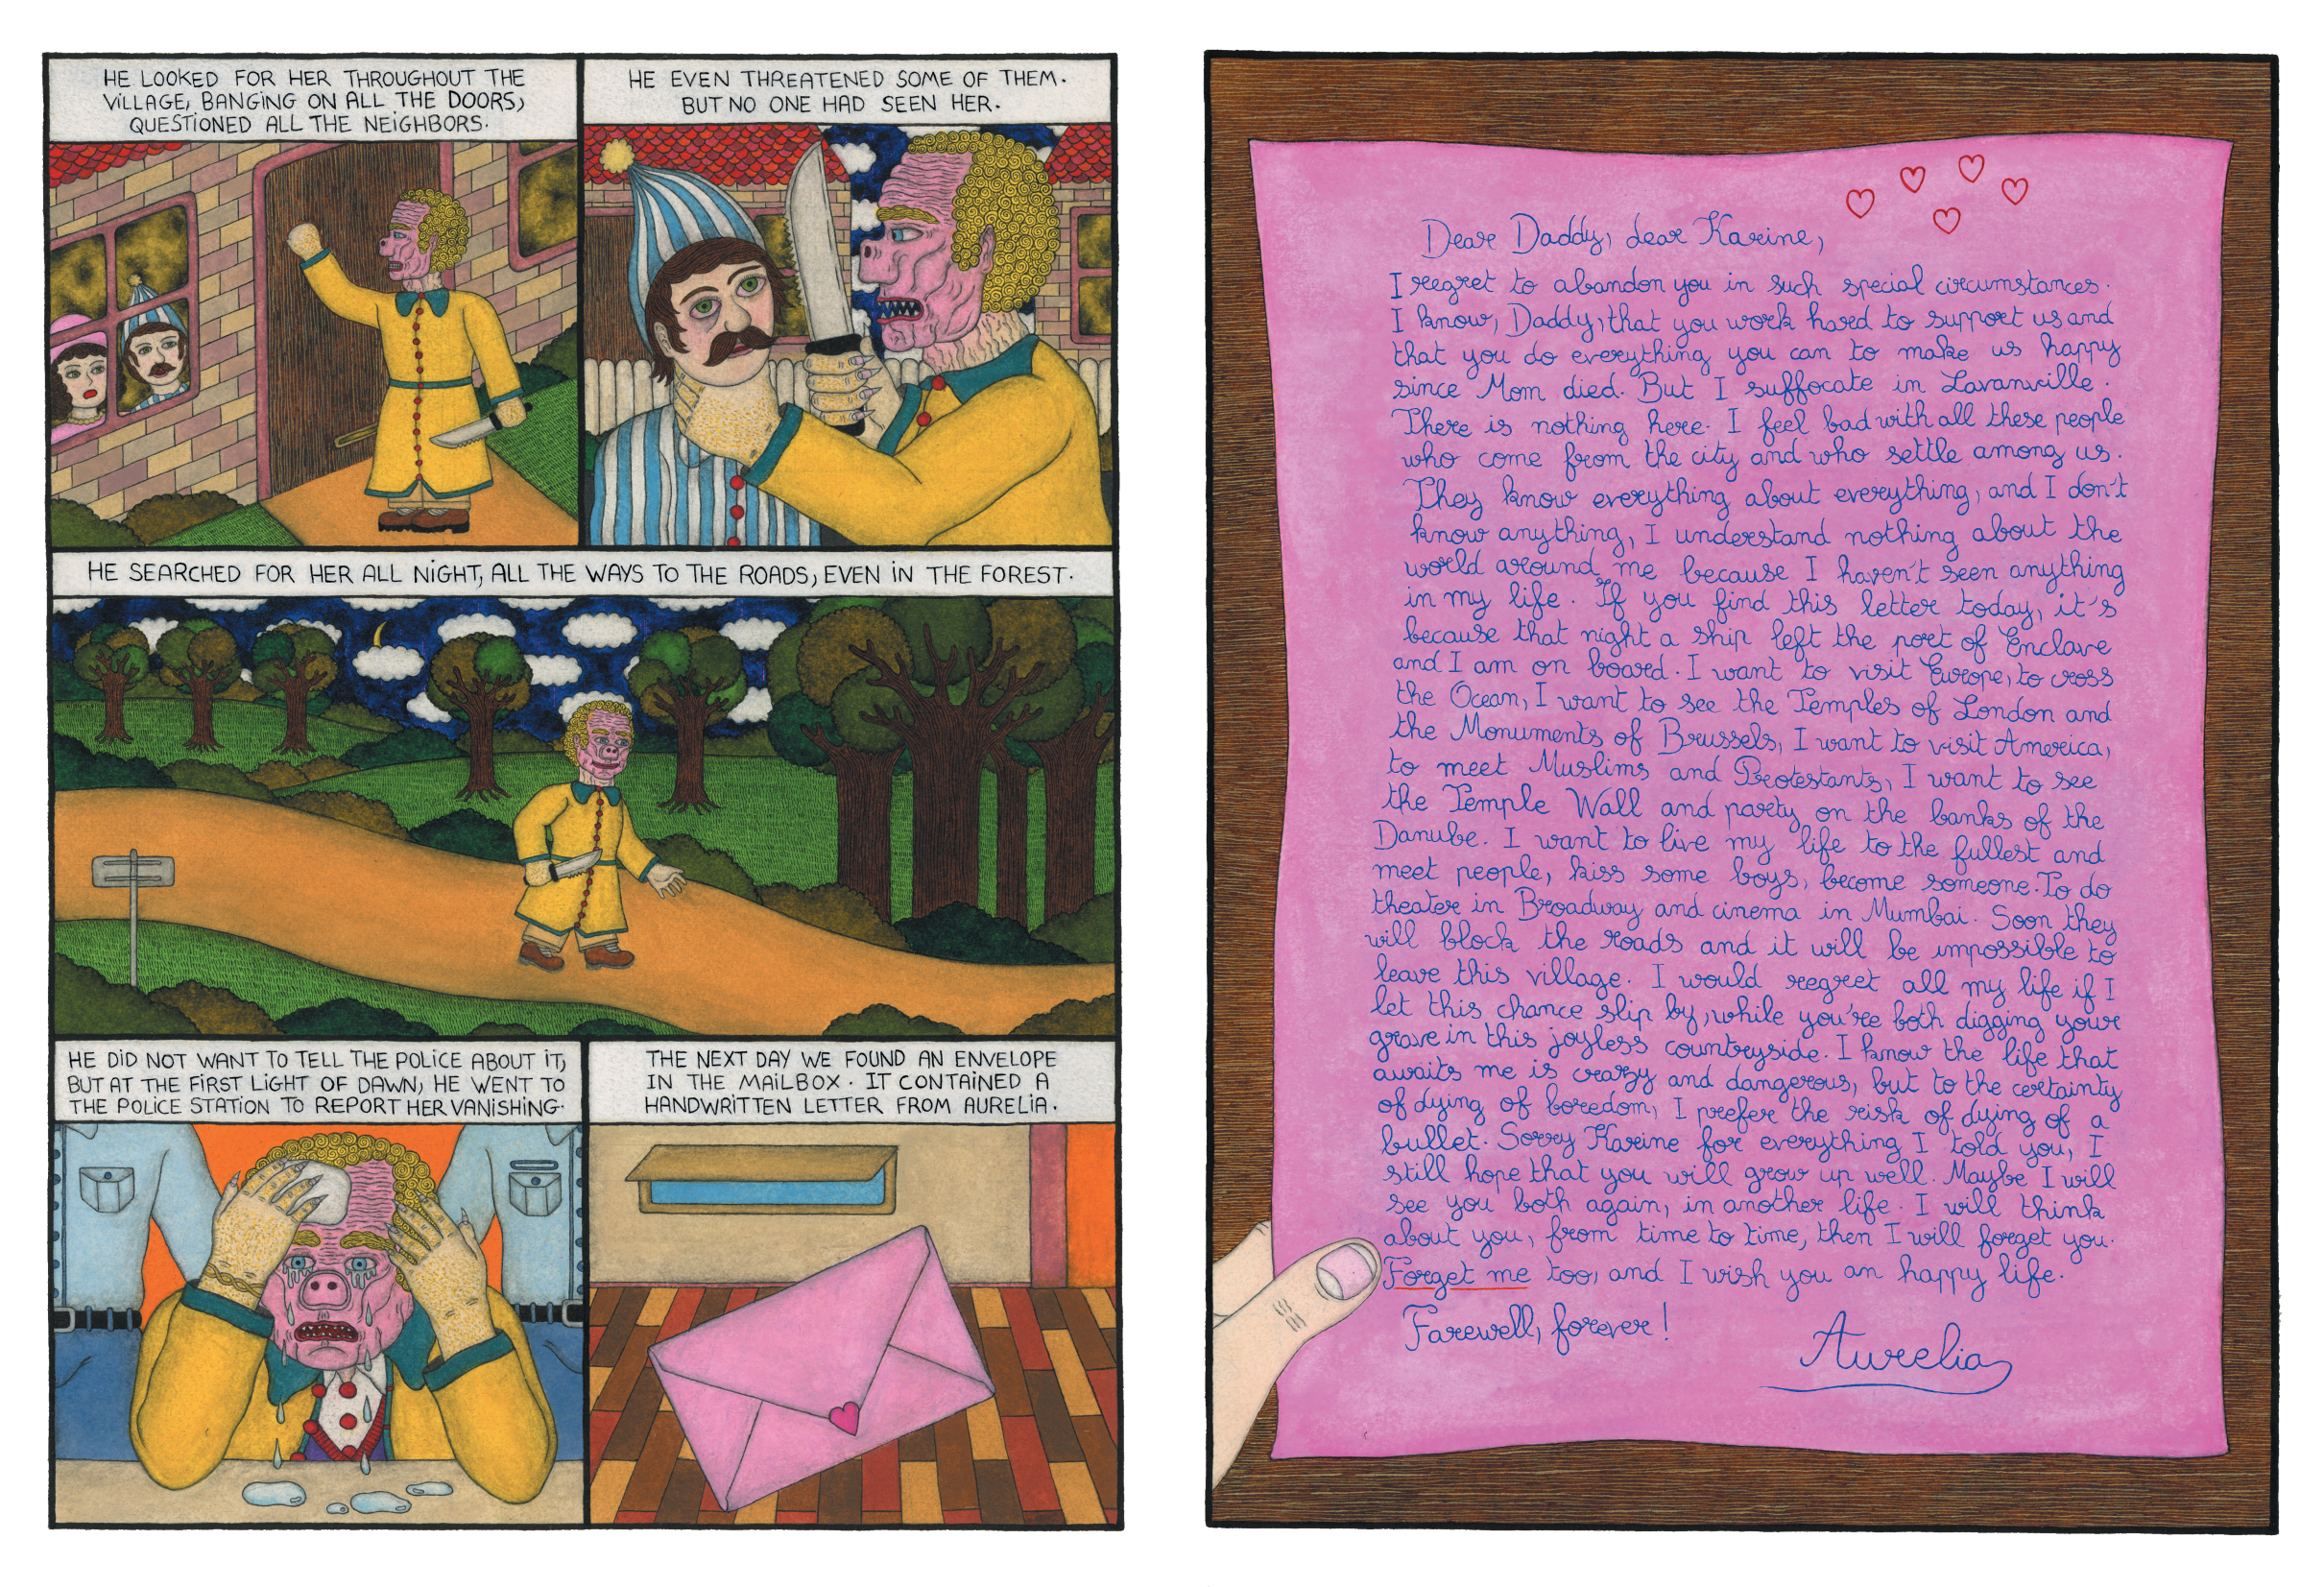 HE LOOKED FOR HER THROUGHOUT THE
VILLAGE, BANGING ON ALL THE DOORS,
QUESTIONED ALL THE NEIGHBORS.
HE EVEN THREATENED SOME OF THEM.
BUT NO ONE HAD SEEN HER.
HE SEARCHED FOR HER ALL NIGHT, ALL THE WAYS TO THE ROADS, EVEN IN THE FOREST.
HE DID NOT WANT TO TELL THE POLICE ABOUT IT,
BUT AT THE FIRST LIGHT OF DAWN, HE WENT TO
THE POLICE STATION TO REPORT HER VANISHING.
THE NEXT DAY WE FOUND AN ENVELOPE
IN THE MAILBOX. IT CONTAINED A
HANDWRITTEN LETTER FROM AURELIA.
Dear Daddy, dear Karine,
I reegret to abandon you in such special circumstances.
I know, Daddy, that you work hard to support us and
that you do everything you can to make us happy
since Mom died. But I suffocate in Lavanville.
There is nothing here. I feel bad with all these people
who come from the city and who settle among us.
They know everything about everything, and I don't
know anything, I understand nothing about the
world around me because I haven't seen anything
in my life. If you find this letter today, it's
because that night a ship left the port of Enclave
and I am on board. I want to visit Europe, to cross
the Ocean, I want to see the Temples of London and
the Monuments of Brussels, I want to visit America,
to meet Muslims and Protestants, I want to see
the Temple Wall and party on the banks of the
Danube. I want to live my life to the fullest and
meet people, kiss some boys, become someone. To do
theater in Broadway and cinema in Mumbai. Soon they
will block the roads and it will be impossible to
leave this village. I would regret all my life if I
let this chance slip by, while you're both digging your
grave in this joyless countryside. I know the life that
awaits me is crazy and dangerous, but to the certainty
of dying of boredom, I prefer the risk of dying of a
bullet. Sorry Karine for everything I told you, I
still hope that you will grow up well. Maybe I will
see you both again, in another life. I will think
about you, from time to time, then I will forget you.
Forget me too, and I wish you an happy life.
Farewell, forever!
Aurelia